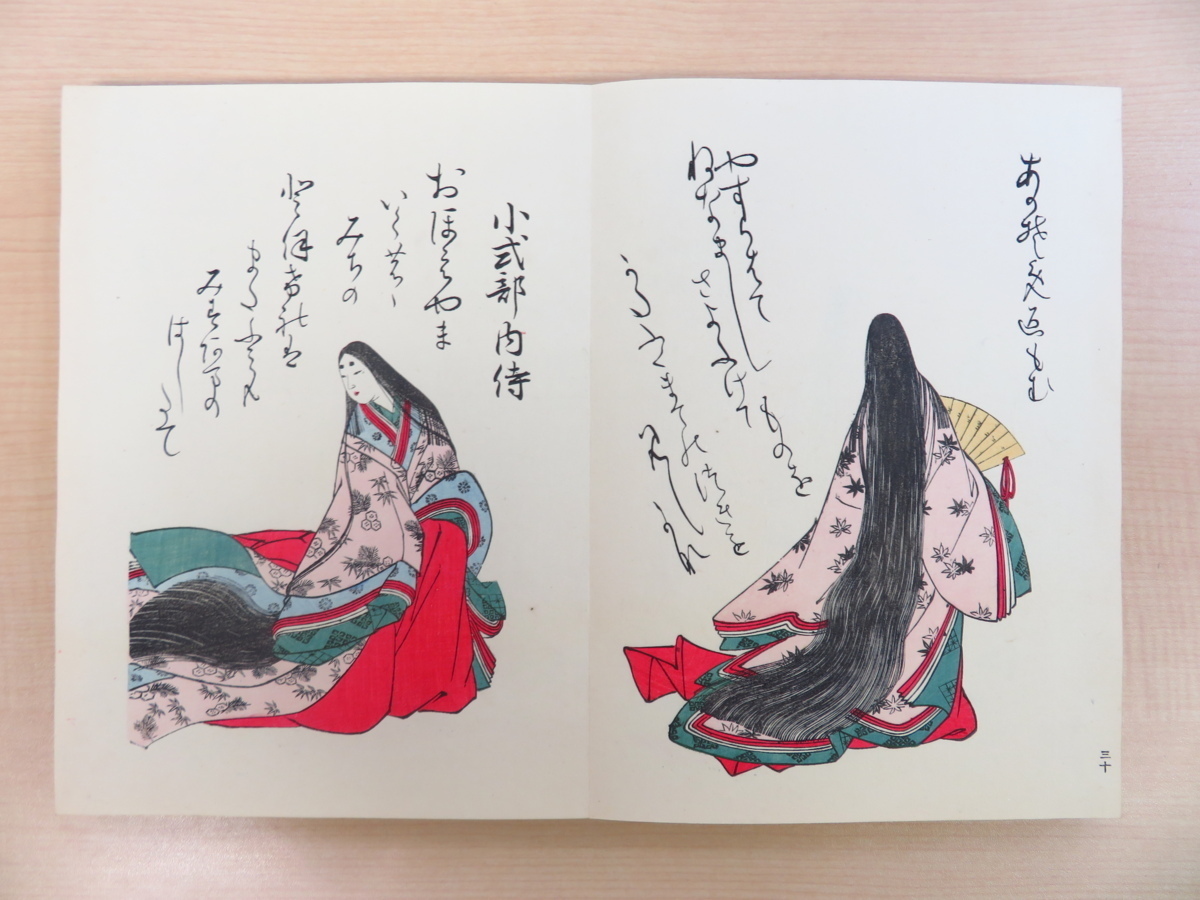 やすらはて
ねなましものを
さよふけて
かたふくまての月を
見しかな
三十
小式部内侍
おほえやま
いくのゝ
みちの
とほけれは
またふみも
みすあまの
はしたて